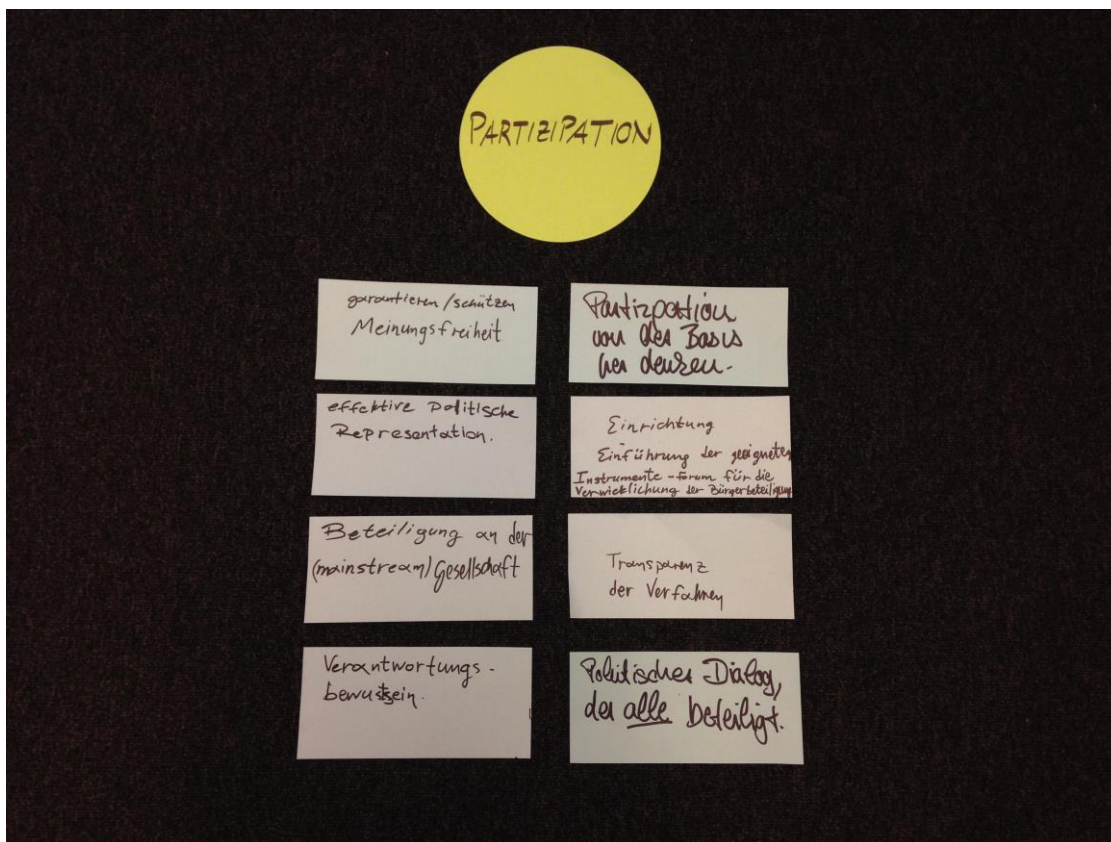 PARTIZIPATION
garantieren / schützen
Meinungsfreiheit
effektive Politische
Representation.
Beteiligung an der
(mainstream) Gesellschaft
Verantwortungs-
bewustsein.
Partizpation
von der Basis
her denken.
Einrichtung
Einführung der geeigneten
Instrumente - Forum für die
Verwicklichung der Bürgerbeteiligung
Transparenz
der Verfahren
Politischer Dialog,
der alle beteiligt.